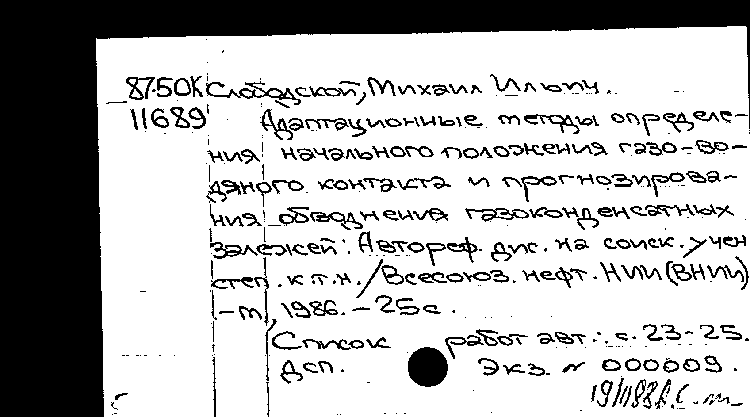 87-50К Слободской, Михаил Ильич.
11689 Адаптационные методы определе-
ния начального положения газо-во-
дяного контакта и прогнозирова-
ния обводнения газоконденсатных
залежей: Автореф. дис. на соиск. учен
степ. к.т.н. / Всесоюз. нефт. НИИ (ВНИИ)
-М, 1986. - 25 с.
Список работ авт.: с. 23-25.
Дсп. Экз. № 000009.